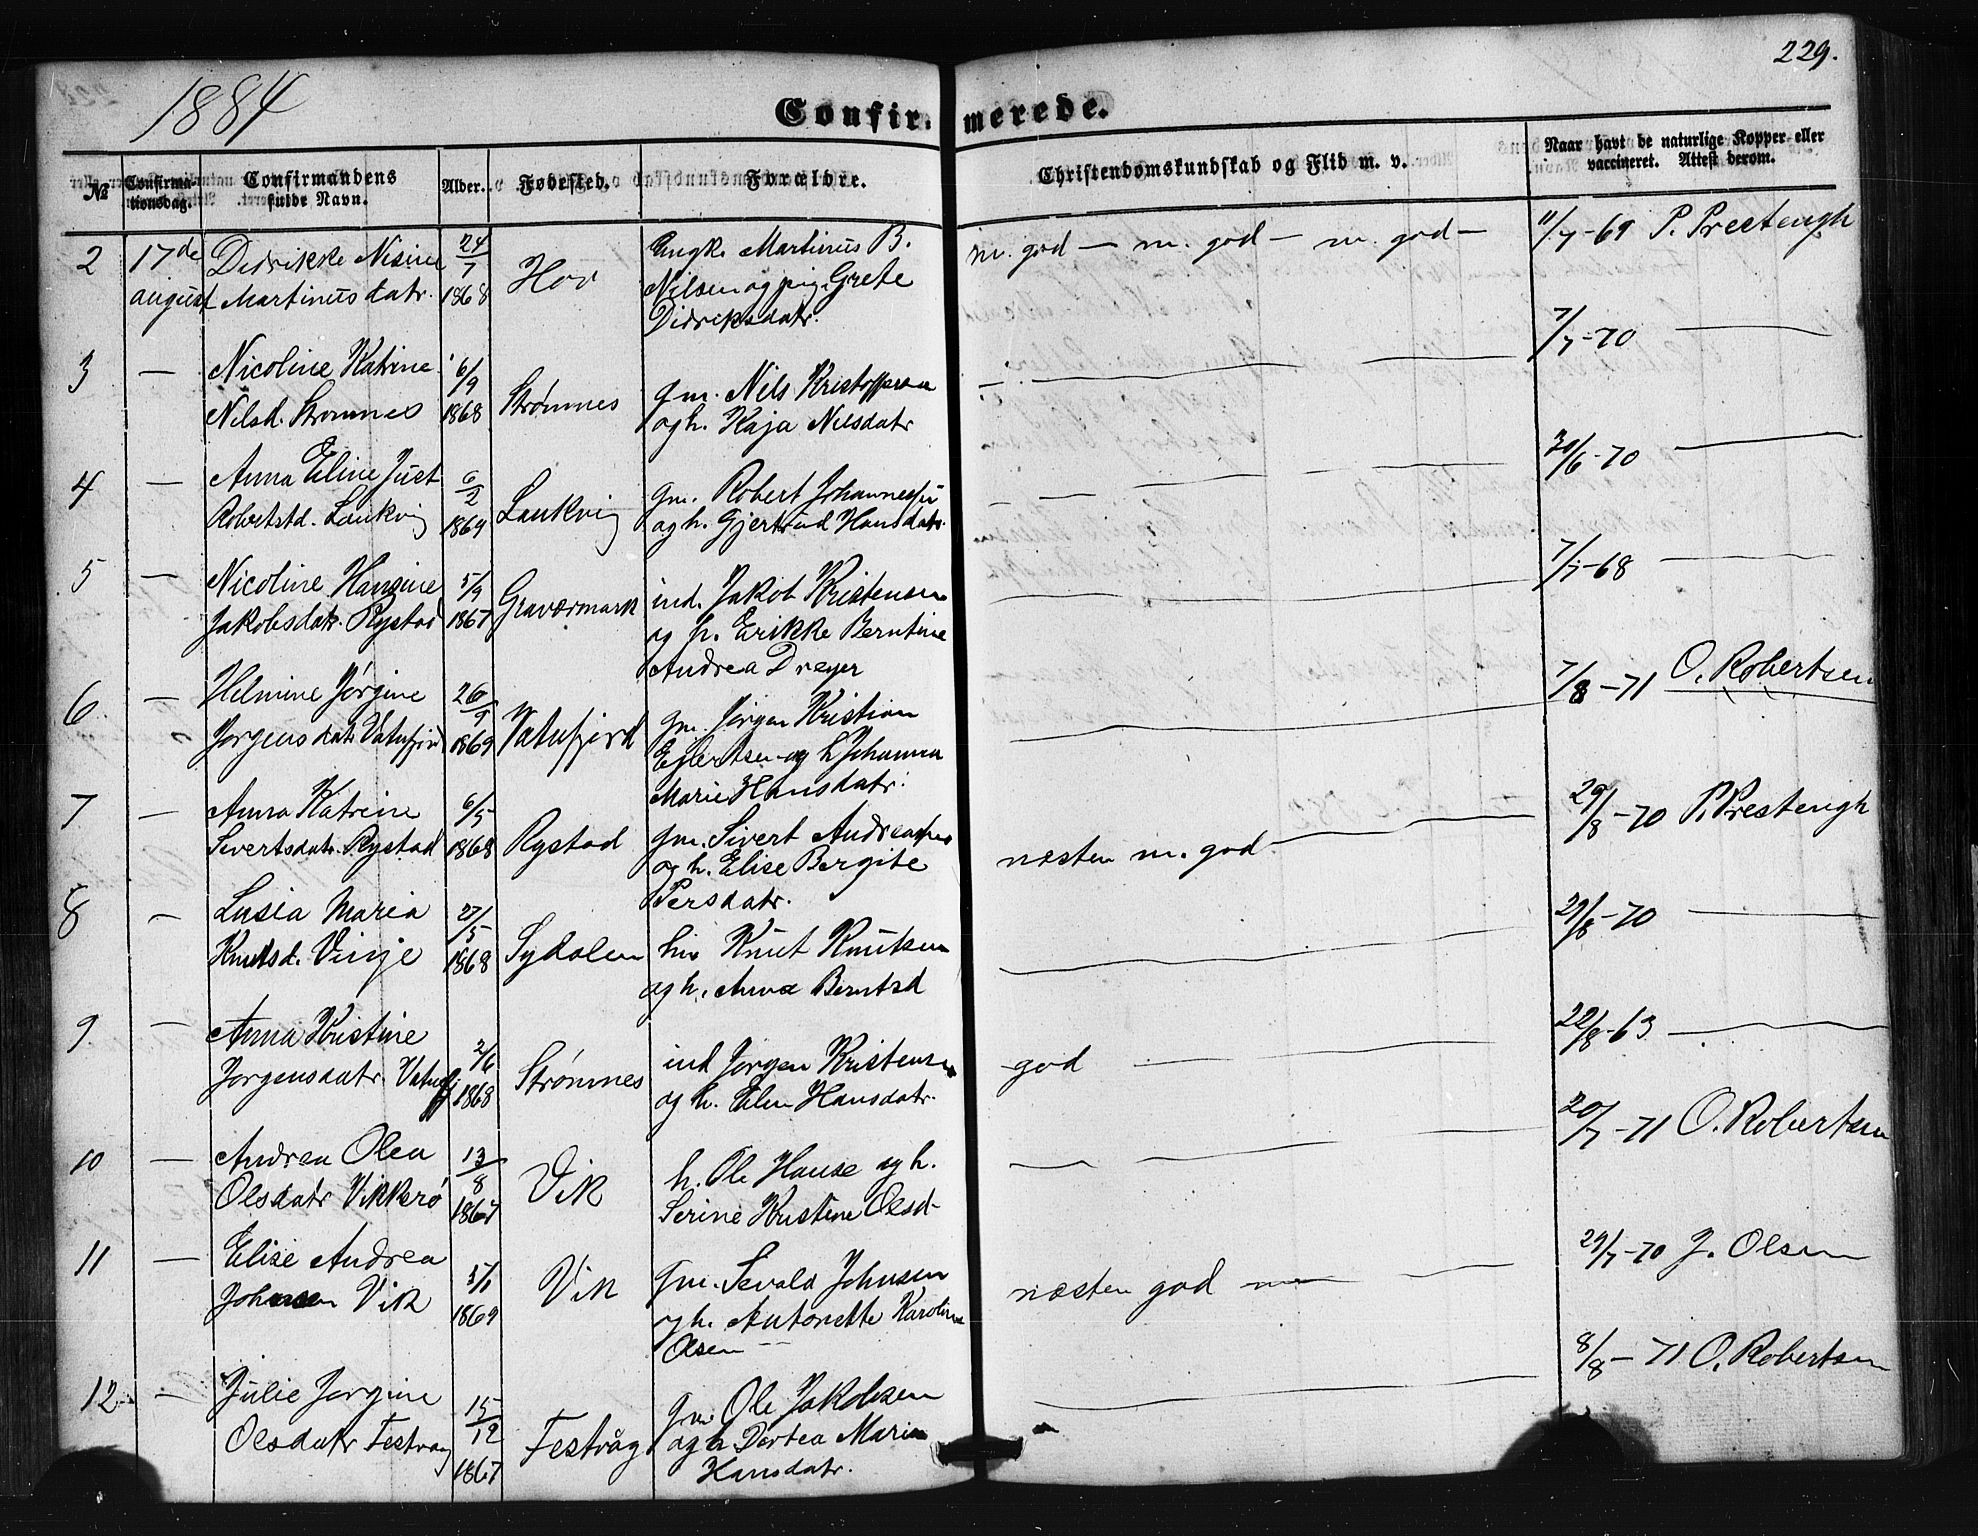 229.
1884
Confirmerede.
№
Confirmationsdag.
Confirmandens fulde Navn.
Alder.
Fødested.
Forældre.
Christendomskundskab og Flid m. v.
Naar havt de naturlige Kopper eller vaccineret. Attest derom.
2 17de Didrikke Nisine 24/7 Hov Ungk. Martinus B. m. god — m. god — m. god — 11/7-69 P. Prestengh
august Martinusdatr. 1868 Nilsen og pig. Grete
Didriksdatr.
3 — Nicoline Katrine 6/9 Strømnes gm. Nils Kristoffersen — 7/7-70 —
Nilsd. Strømnes 1868 og h. Kaja Nilsdatr
4 — Anna Eline Just 6/2 Laukvig gm. Robert Johannessen — 30/6-70 —
Robertsd. Laukvig 1869 og h. Gjertrud Hansdatr.
5 — Nicoline Hansine 5/9 Gravermark ind. Jakob Kristensen — 7/7-68 —
Jakobsdatr. Rystad 1867 og h. Erikke Berntine
Andrea Dreyer
6 — Helmine Jørgine 26/9 Vatnfjord gm. Jørgen Kristian — 7/8-71 O. Robertsen
Jørgensdatr Vatnfjord 1869 Ejlertsen og h Johanna
Marie Hansdatr.
7 — Anna Katrine 6/5 Rystad gm. Sivert Andreassen næsten m. god — 29/8-70 P. Prestengh
Sivertsdatr. Rystad 1868 og h. Elise Bergite
Persdatr.
8 — Lusia Maria 27/5 Sydalen Knut Knutsen — 29/8-70 —
Knutsd. Vinje 1868 og h. Anna Berntsd
9. — Anna Kristine 2/6 Strømnes ind Jørgen Kristensen god — 22/8-63 —
Jørgensdatr. Vatnfj 1868 og h. Elen Hansdatr.
10 — Andrea Olea 13/8 Vik h. Ole Hanse og h. — 20/7-71 O. Robertsen
Olsdatr Vikkerø 1867 Serine Kristine Olsd-
11 — Elise Andrea 5/1 Vik gm. Sevald Johnsen næsten god — 29/7-70 J. Olsen
Johnsen Vik 1869 og h. Antonette Karoline
Olsen
12 — Julie Jørgine 15/12 Festvåg gm. Ole Jakobsen — 8/8-71 O. Robertsen
Olsdatr Festvåg 1867 og h Dortea Marie
Hansdatr.